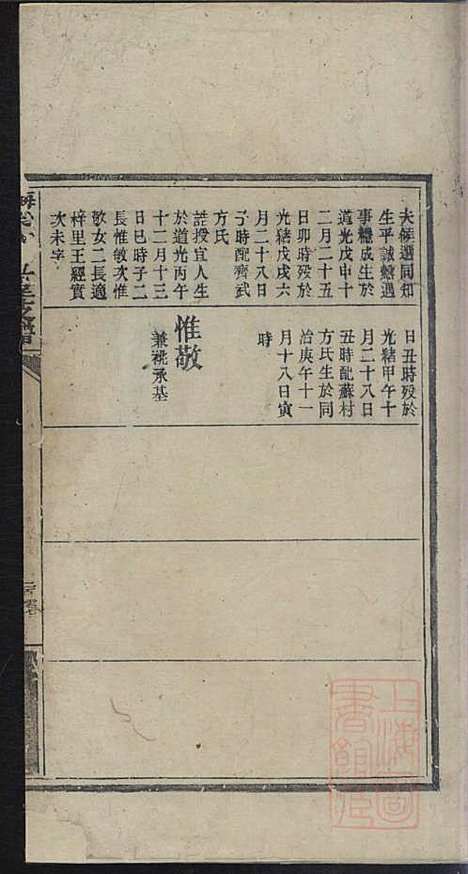 大候選同知
生平誠慤遇
事穩成生於
道光戊申十
二月二十五
日卯時殁於
光緒戊戌六
月二十八日
子時配齊武
方氏
誥授宜人生
於道光丙午
十二月十三
日巳時子二
長惟敏次惟
敬女二長適
梓里王經實
次未字
日丑時殁於
光緒甲午十
月二十八日
丑時配蘇村
方氏生於同
治庚午十一
月十八日寅
時
惟敬
兼祧承基
上海圖
書館藏